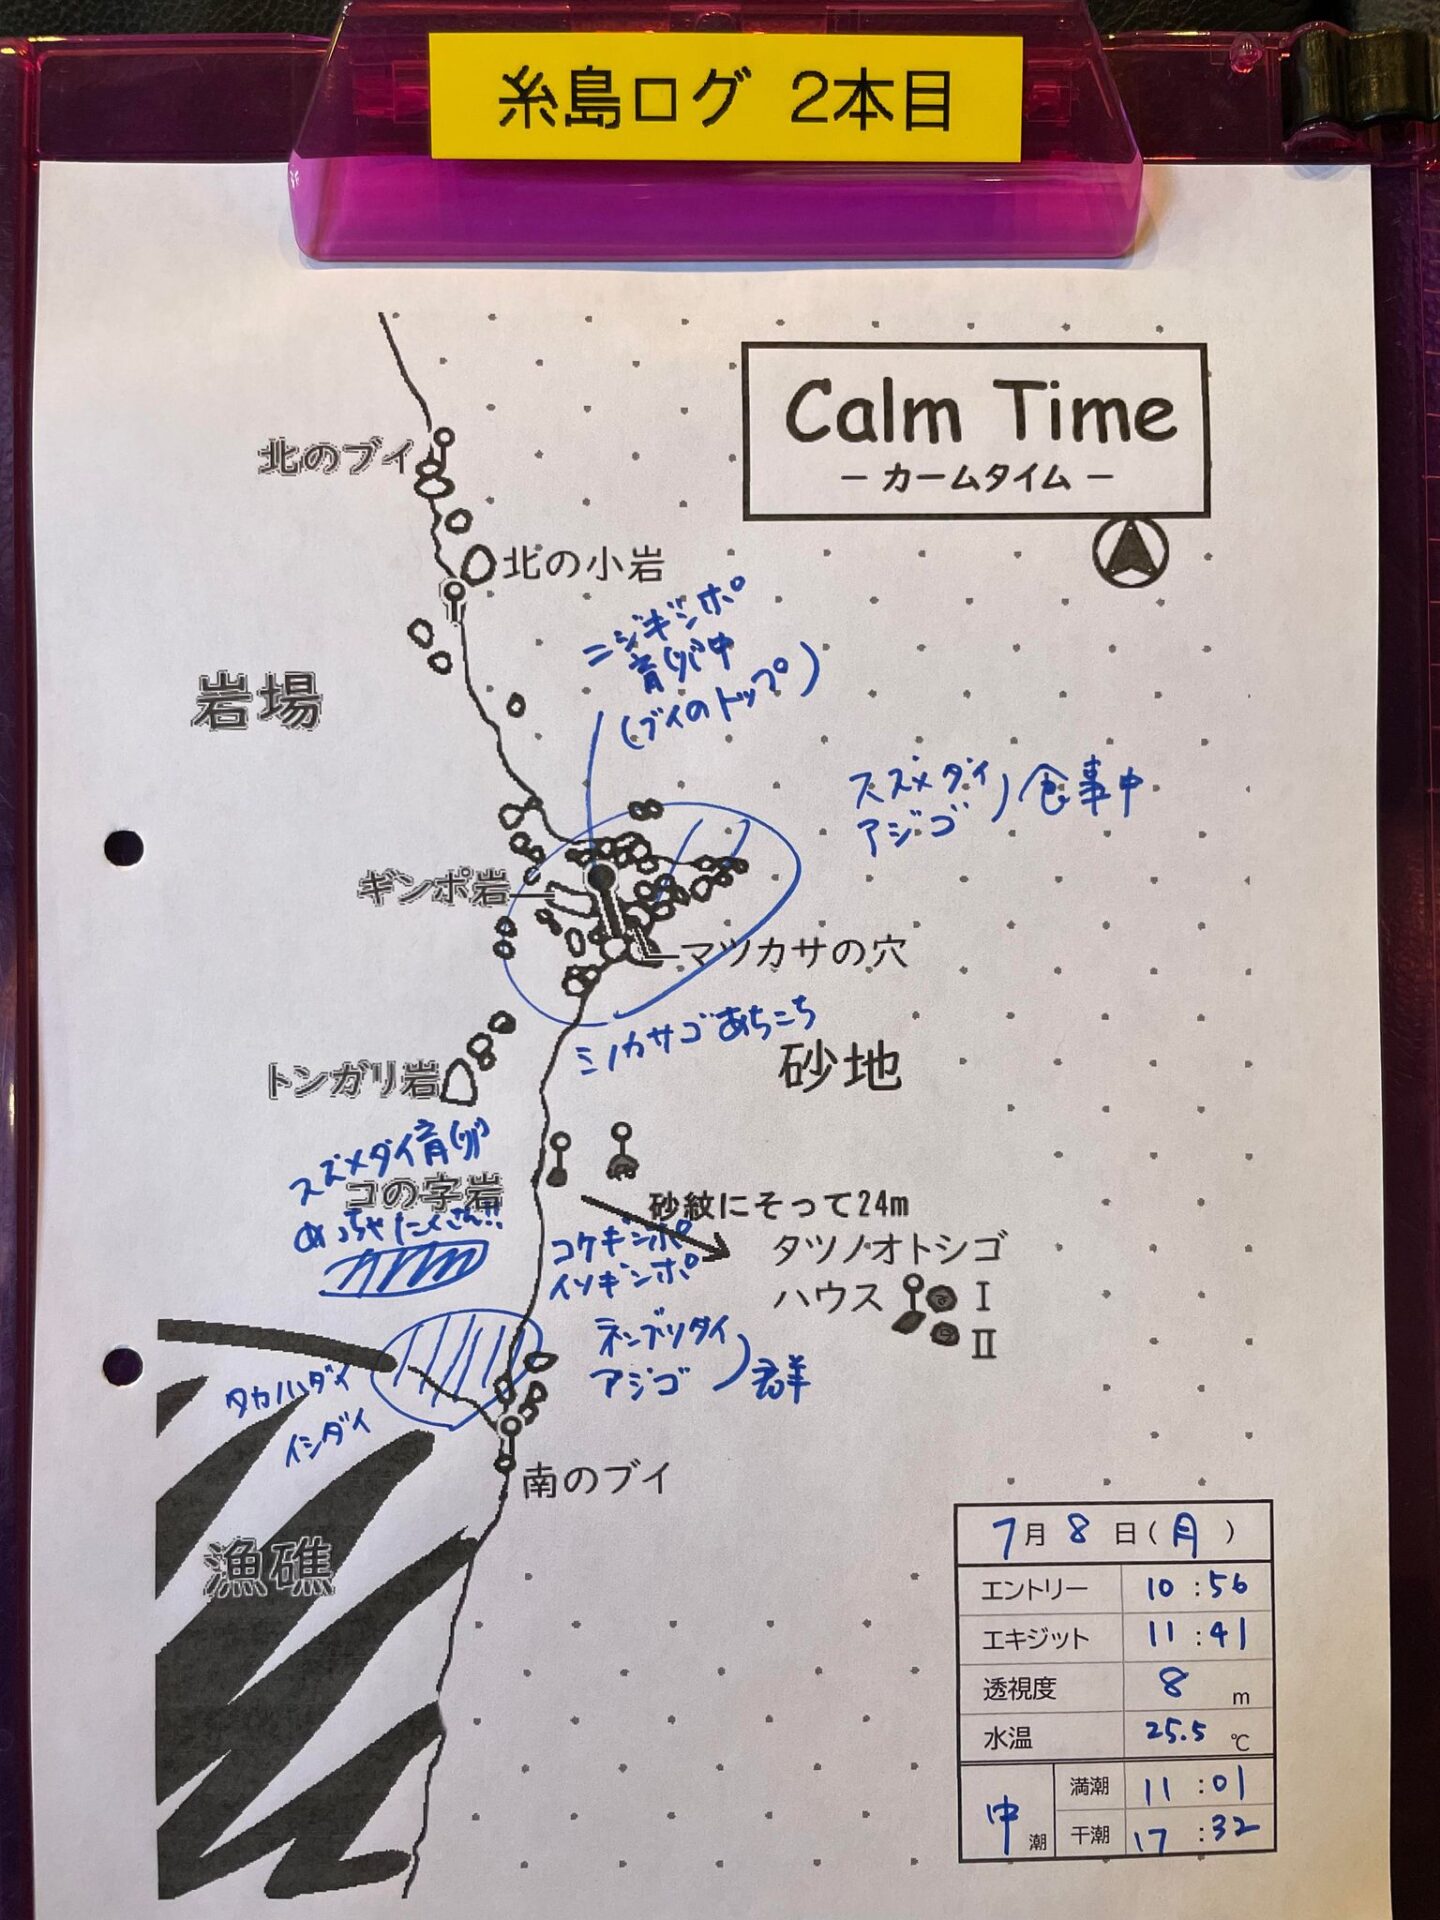 糸島ログ 2本目
Calm Time
－ カームタイム －
北のブイ
北の小岩
ニジギンポ
育卵中
(ブイのトップ)
岩場
スズメダイ
アジゴ
食事中
ギンポ岩
マツカサの穴
ミノカサゴあちこち
砂地
トンガリ岩
スズメダイ育卵
コの字岩
めっちゃたくさん!!
砂紋にそって24m
コケギンポ
イソギンポ
タツノオトシゴ
ハウス
I
II
ネンブツダイ
アジゴ
群
タカノハダイ
イシダイ
南のブイ
漁礁
7月 8日(月)
エントリー 10:56
エキジット 11:41
透視度 8 m
水温 25.5 ℃
中潮
満潮 11:01
干潮 17:32